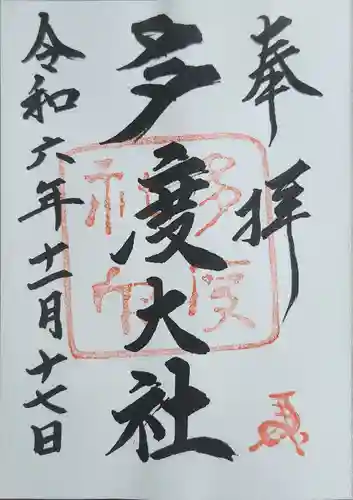 奉拝
多度大社
令和六年十一月十七日
多度神印